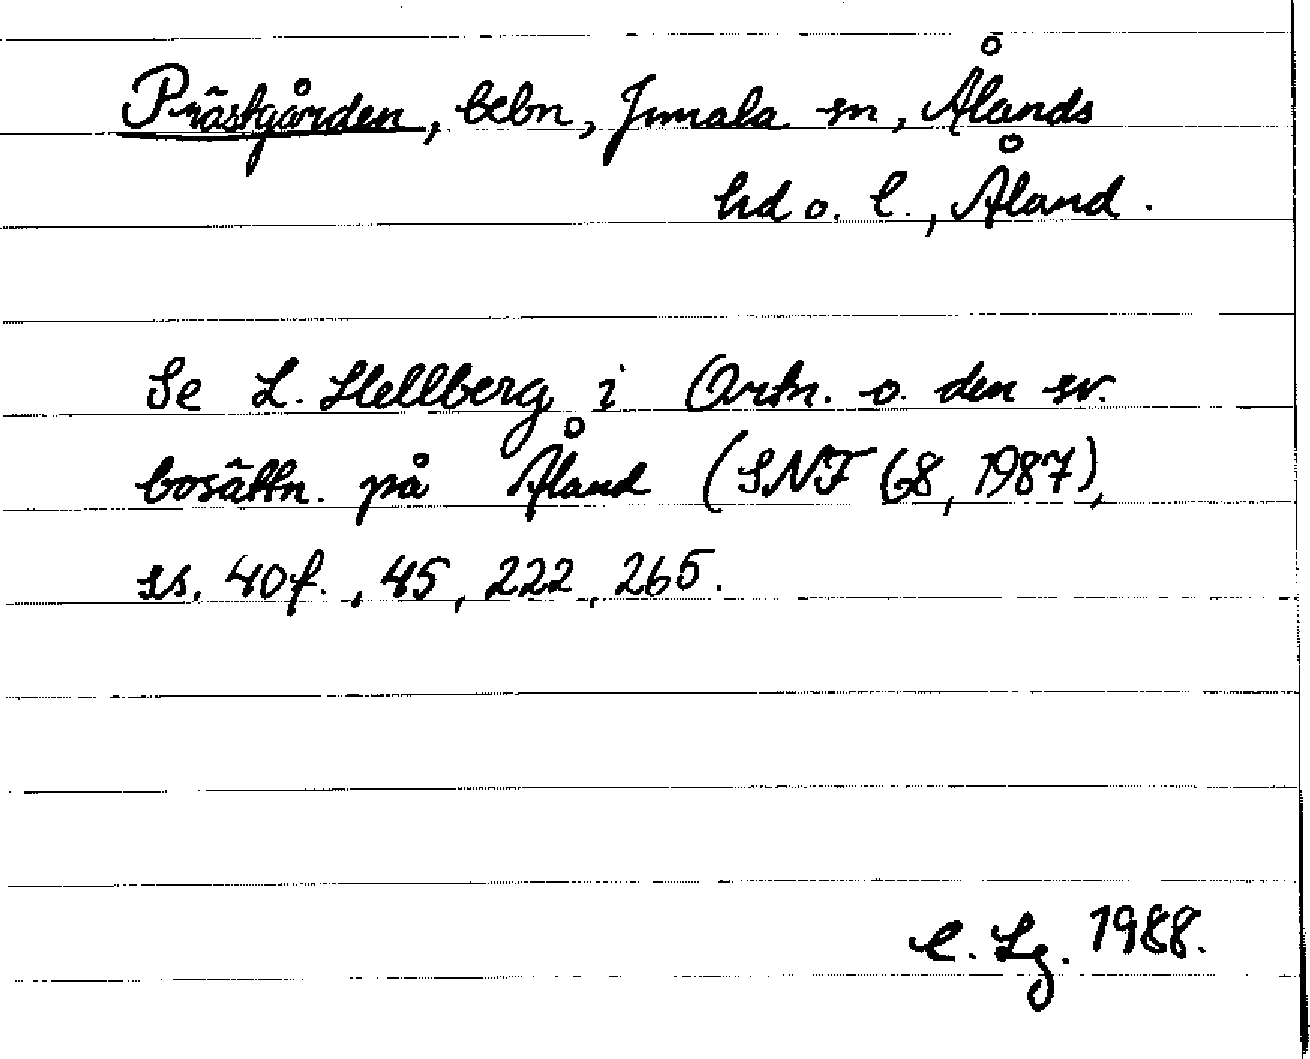 Prästgården, bebn, Jomala sn, Ålands
hd o. l., Åland.
Se L. Hellberg i Ortn. o. den sv.
bosättn. på Åland (SNF 68, 1987),
ss. 40f., 45, 222, 265.
C. Lg. 1988.